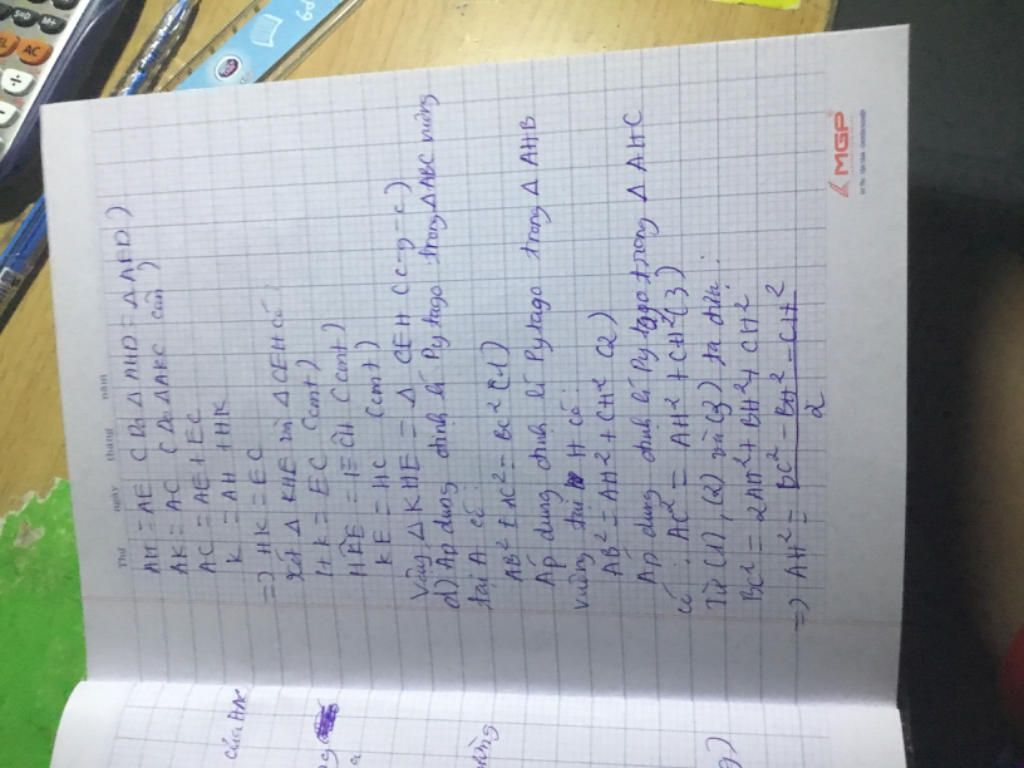 Thứ ngày tháng năm
AH = AE ( Do Δ AHD = Δ AED )
AK = AC ( Do Δ AKC cân )
AC = AE + EC
K = AH + HK
=> HK = EC
Xét Δ KHE và Δ CEH có :
HK = EC (cmt)
HKE = ECH (cmt)
KE = HC (cmt)
Vậy Δ KHE = Δ CEH (c-g-c)
d) Áp dụng định lí Pytago trong Δ ABC vuông
tại A có :
AB² + AC² = BC² (1)
Áp dụng định lí Pytago trong Δ AHB
vuông tại H có :
AB² = AH² + CH² (2)
Áp dụng định lí Pytago trong Δ AHC
có : AC² = AH² + CH² (3)
Từ (1), (2) và (3) ta được :
BC² = 2AH² + BH² + CH²
=> AH² = BC² - BH² - CH²
2
MGP
của
AC
+
-